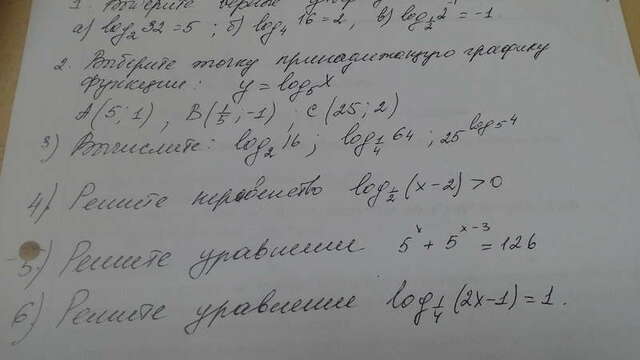 1. Выберите верное
а) log₂32=5 ; б) log₄16=2, в) log_{1/2}2=-1.
2. Выберите точку принадлежащую графику
функции: y = log₅x
A(5;1), B(1/5;-1); C(25;2)
3) Вычислите: log₂16; log_{1/4}64; 25^{log₅4}
4) Решите неравенство log_{1/2}(x-2)>0
5) Решите уравнение 5^x + 5^{x-3} = 126
6) Решите уравнение log_{1/4}(2x-1)=1.